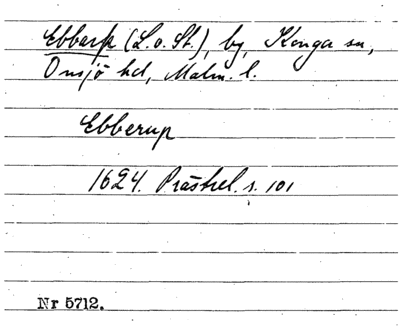 Ebbarp (L. o. St.), by, Konga sn,
Onsjö hd, Malm. l.
Ebberup
1624. Prästrel. s. 101
Nr 5712.